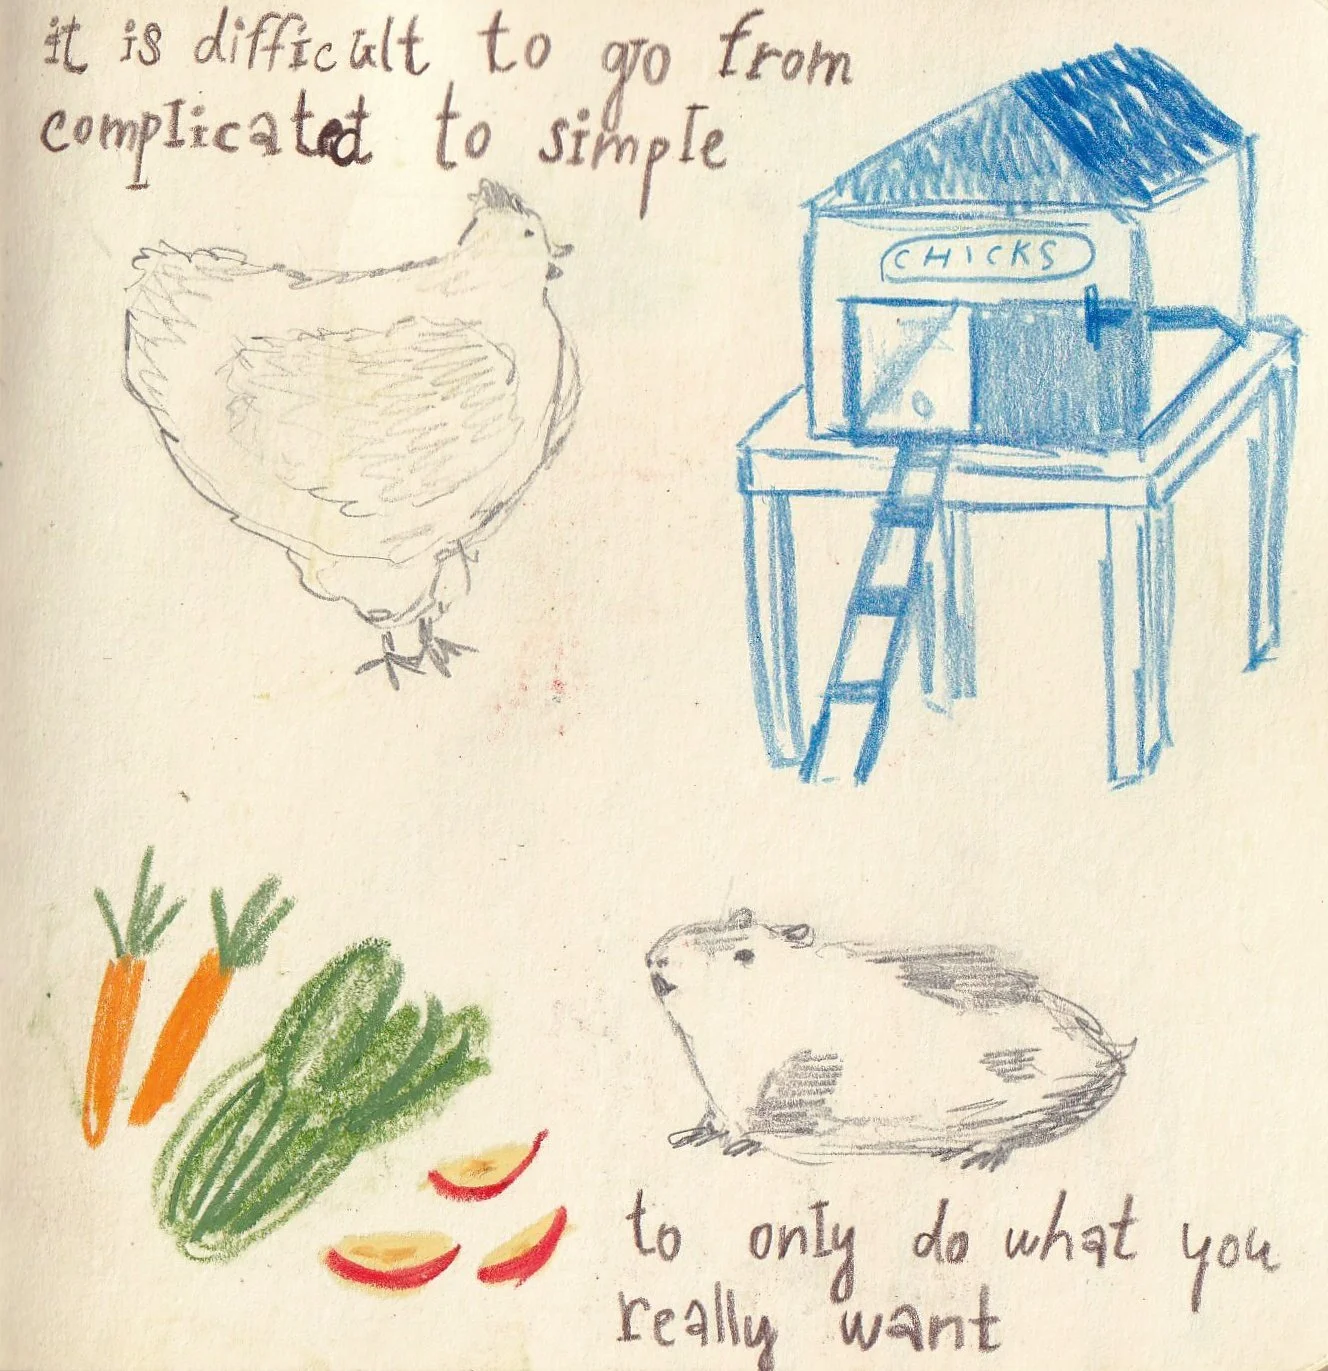 it is difficult to go from
complicated to simple
CHICKS
to only do what you
really want